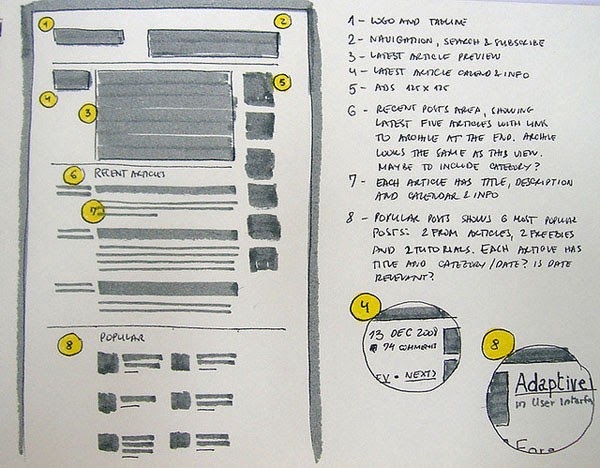 1
2
4
3
5
6 RECENT ARTICLES
7
8 POPULAR
1 - LOGO AND TAGLINE
2 - NAVIGATION, SEARCH & SUBSCRIBE
3 - LATEST ARTICLE PREVIEW
4 - LATEST ARTICLE CALEND & INFO
5 - ADS 125 X 125
6 - RECENT POSTS AREA, SHOWING
LATEST FIVE ARTICLES WITH LINK
TO ARCHIVE AT THE END. ARCHIVE
LOOKS THE SAME AS THIS VIEW.
MAYBE TO INCLUDE CATEGORY?
7 - EACH ARTICLE HAS TITLE, DESCRIPTION
AND CALENDAR & INFO
8 - POPULAR POSTS SHOWS 6 MOST POPULAR
POSTS: 2 FROM ARTICLES, 2 FREEBIES
AND 2 TUTORIALS. EACH ARTICLE HAS
TITLE AND CATEGORY/DATE? IS DATE
RELEVANT?
4
13 DEC 2008
74 COMMENTS
EV • NEXT
8
Adaptive
in User Interfa